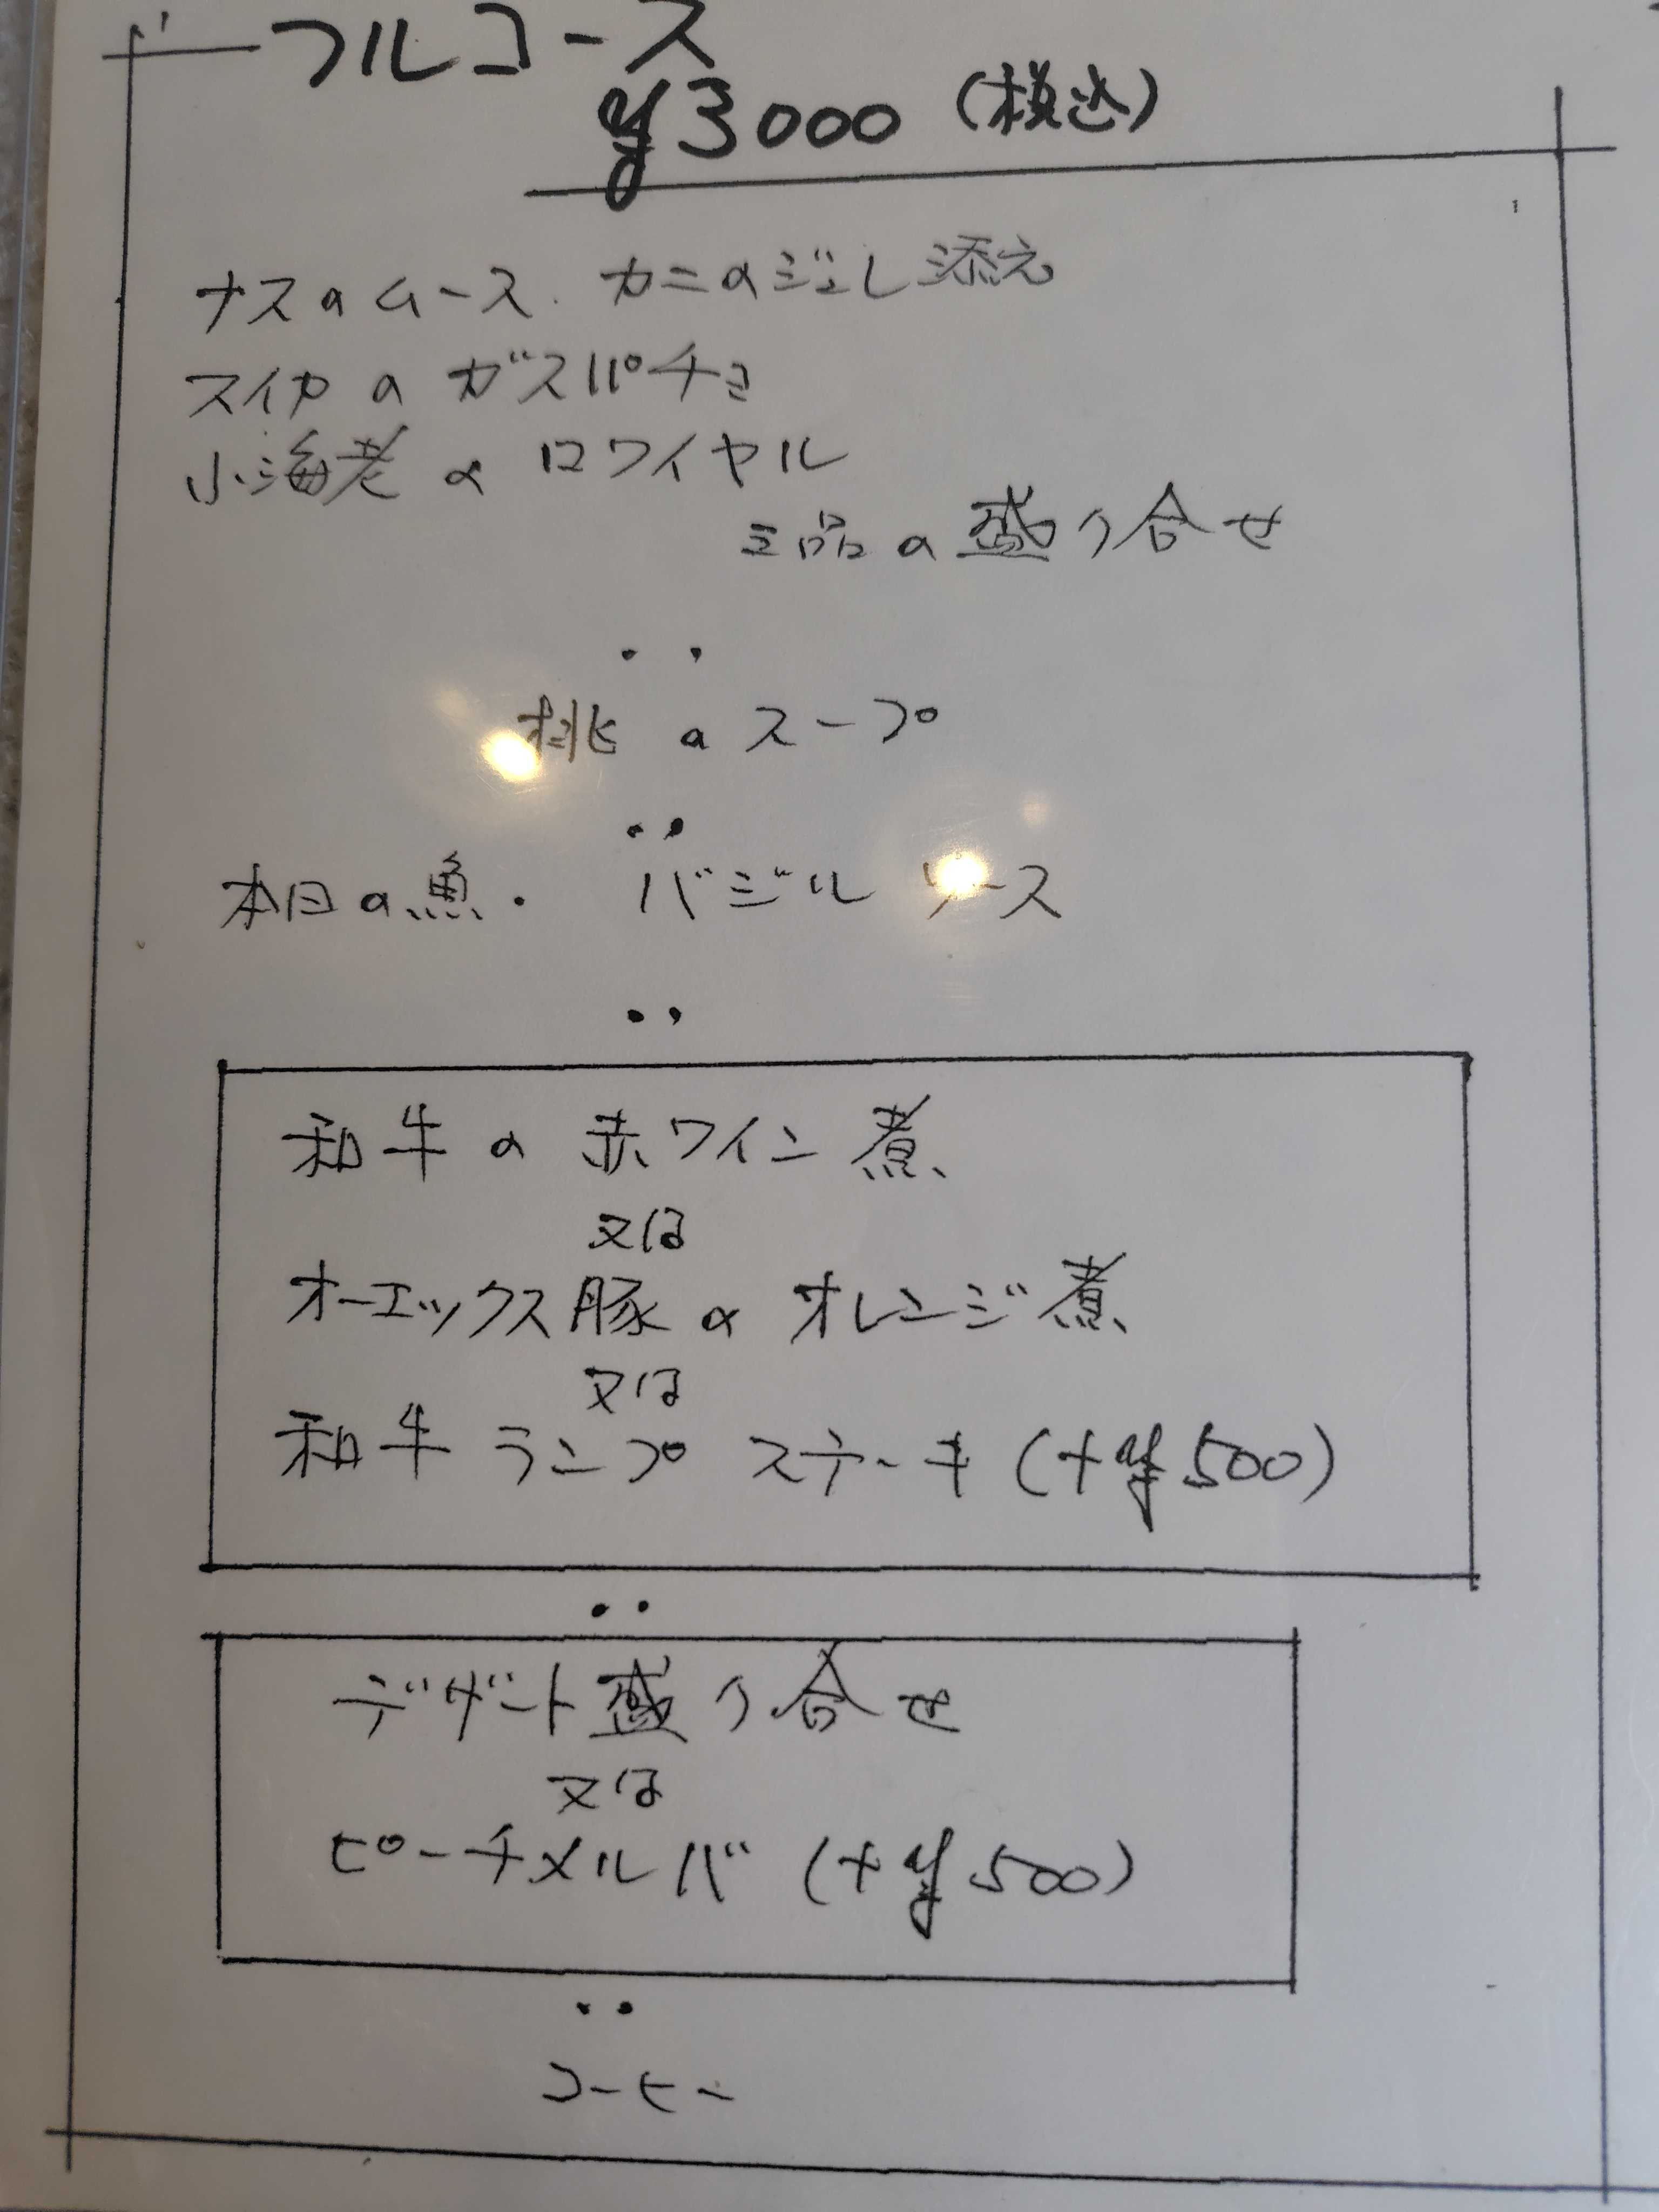 フルコース
¥3000 (税込)
ナスのムース. カニのジュレ添え
スイカのガスパチョ
小海老のロワイヤル
三品の盛り合せ
桃のスープ
本日の魚. バジルソース
和牛の赤ワイン煮
又は
オーエックス豚のオレンジ煮
又は
和牛ランプステーキ(+¥500)
デザート盛り合せ
又は
ピーチメルバ(+¥500)
コーヒー